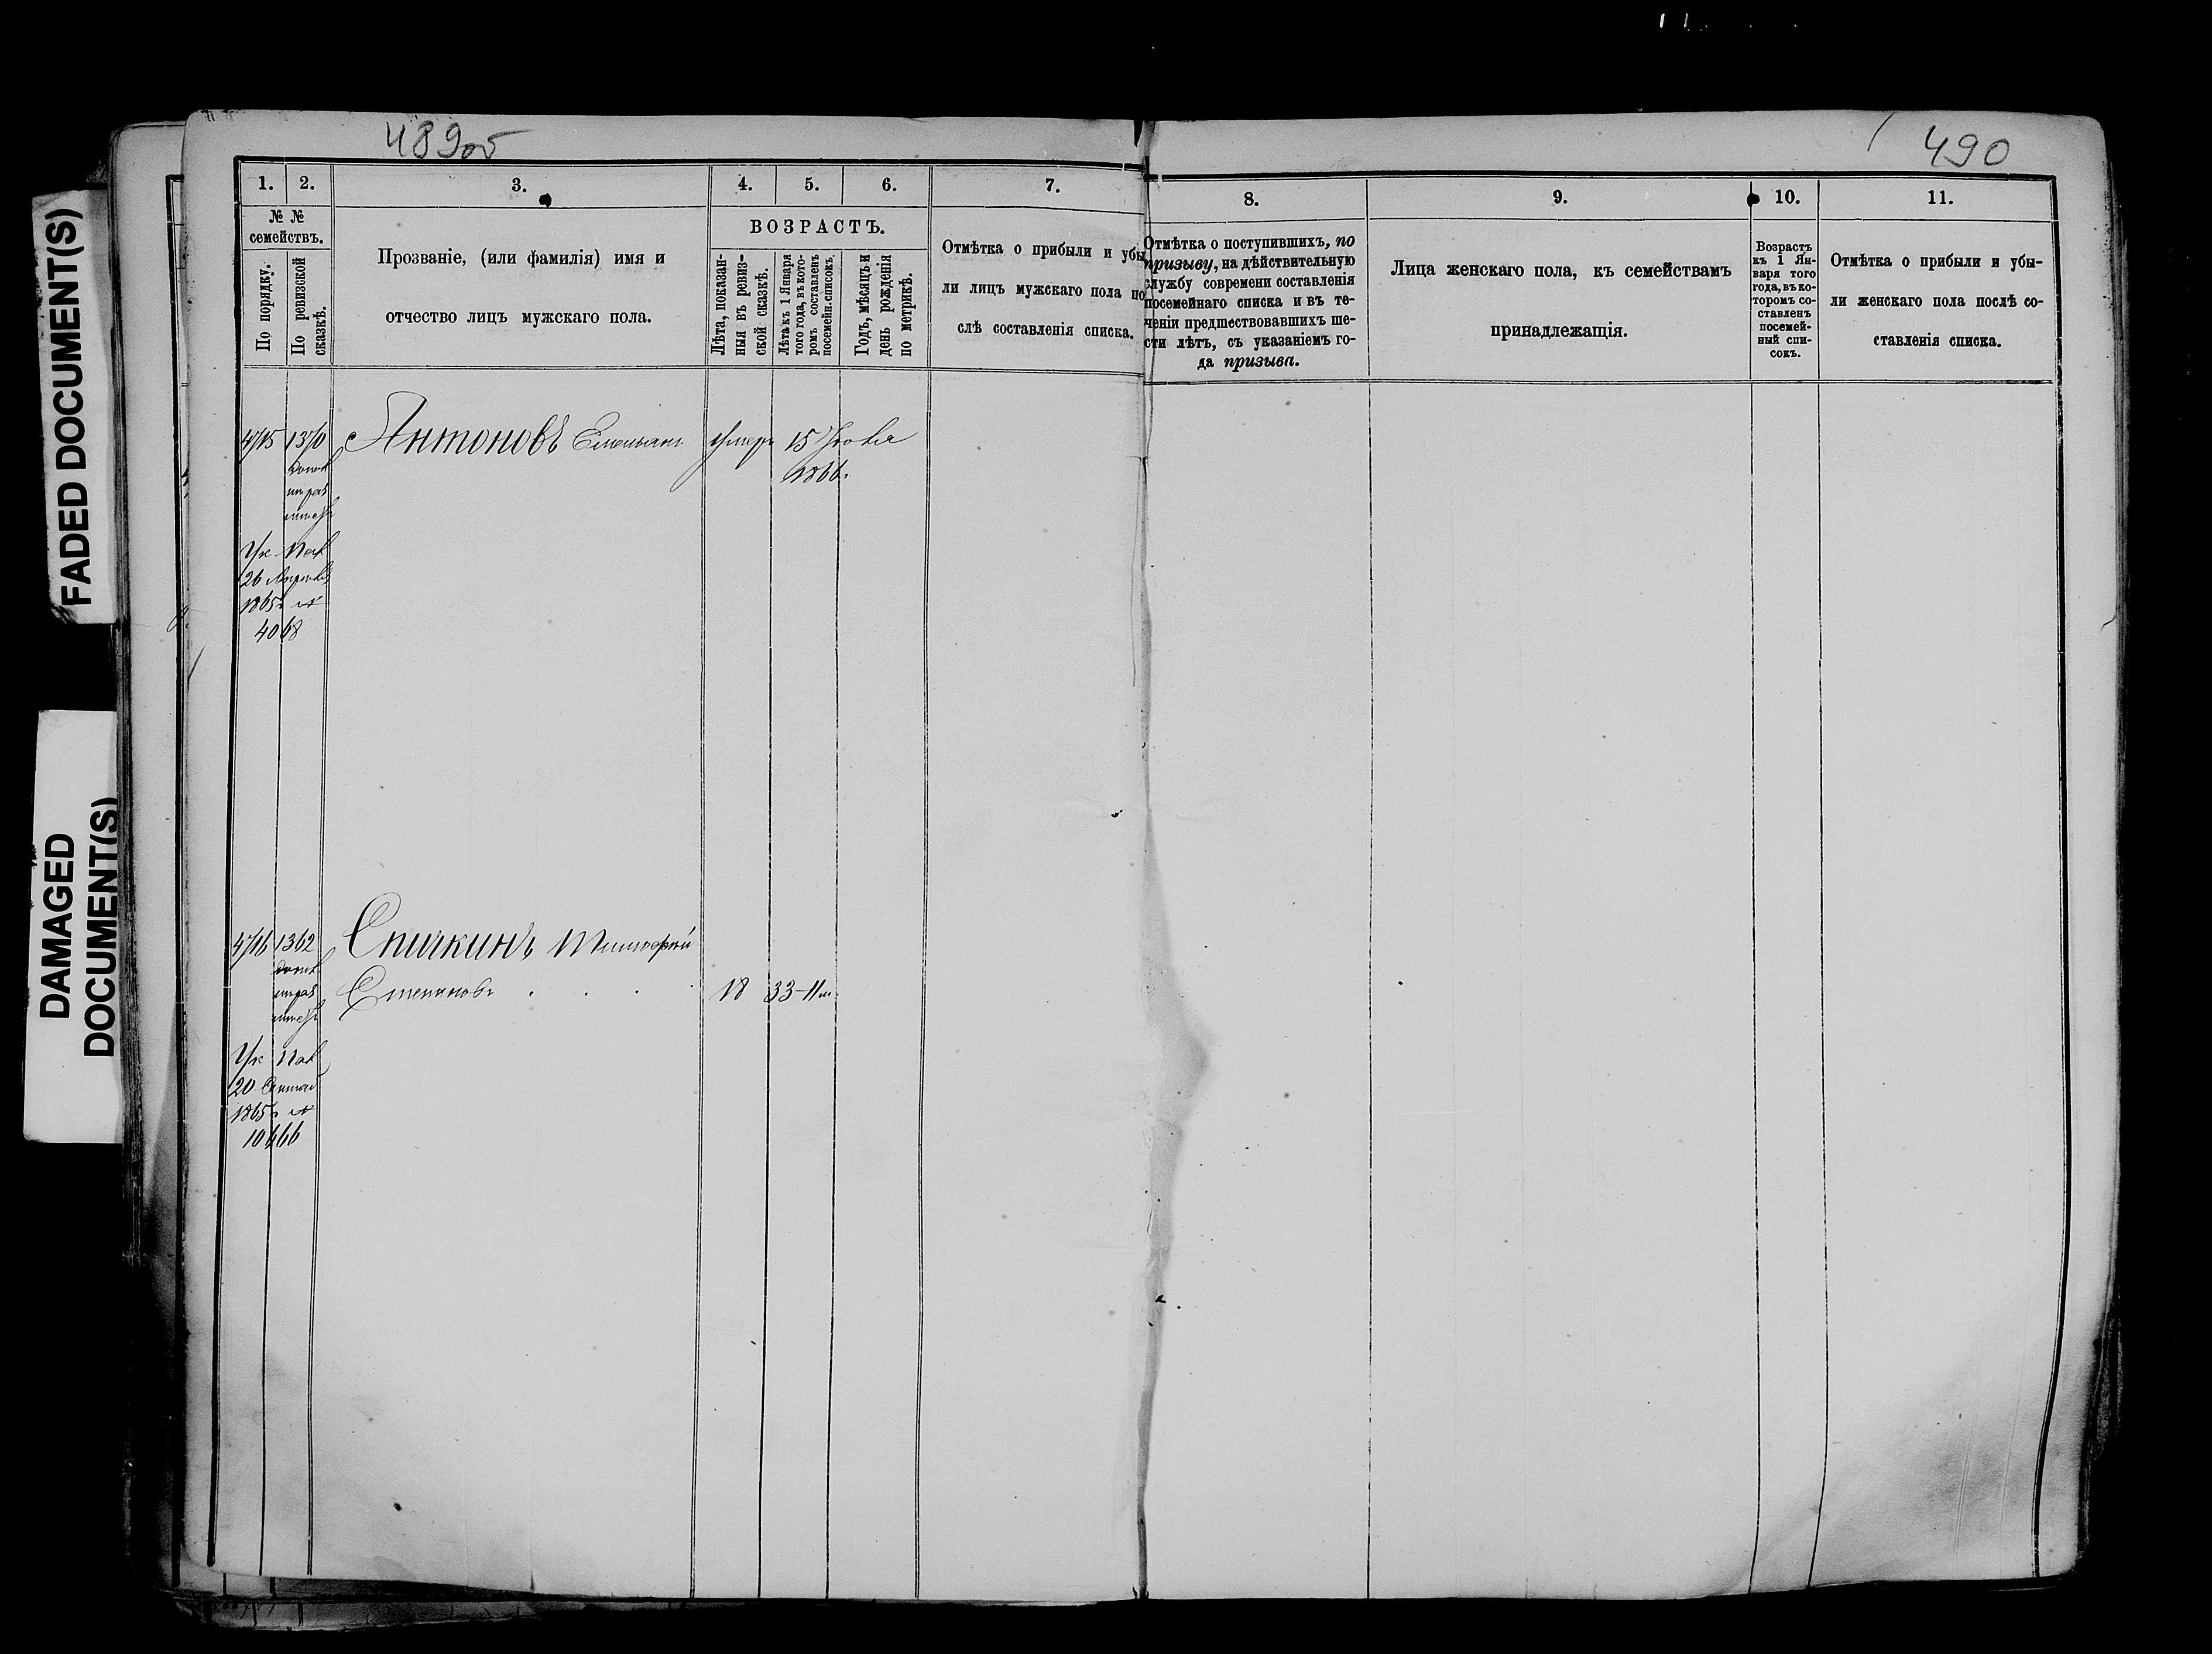 FADED DOCUMENT(S)
DAMAGED
DOCUMENT(S)
489об
490
1. 2. 3. 4. 5. 6. 7.
№ №
семействъ.
По порядку.
По ревизской
сказкѣ.
Прозваніе, (или фамилія) имя и
отчество лицъ мужскаго пола.
ВОЗРАСТЪ.
Лѣта, показан-
ныя въ ревиз-
ской сказкѣ.
Лѣта къ 1 Января
того года, въ кото-
ромъ составленъ
посемейн. списокъ.
Годъ, мѣсяцъ и
день рожденія
по метрикѣ.
Отмѣтка о прибыли и убы
ли лицъ мужскаго пола по
слѣ составленія списка.
8. 9. 10. 11.
Отмѣтка о поступившихъ, по
призыву, на дѣйствительную
службу современи составленія
посемейнаго списка и въ те-
ченіи предшествовавшихъ ше-
сти лѣтъ, съ указаніемъ го-
да призыва.
Лица женскаго пола, къ семействамъ
принадлежащія.
Возрастъ
къ 1 Ян-
варя того
года, въ ко-
торомъ со-
ставленъ
посемей-
ный спи-
сокъ.
Отмѣтка о прибыли и убы-
ли женскаго пола послѣ со-
ставленія списка.
4715 1370 Антоновъ Емельянъ умеръ 15
1866.
Ук Пал
26 Апрѣля
1865 №
4068
4716 1362 Спичкинъ Тимофей
Степановъ . . . . 18 33-11м
Ук Пал
20
1865г №
10666